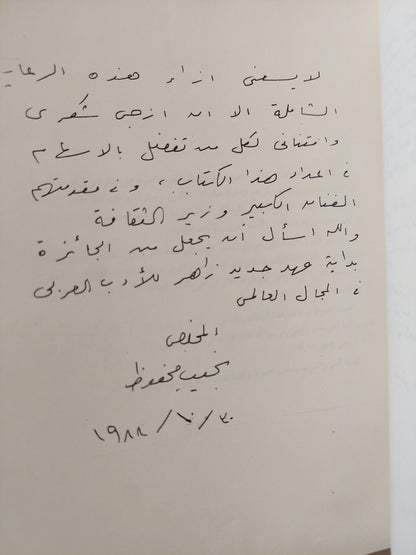 لا يسعنى ازاء هذه الرعاية
الشاملة الا ان ازجى شكرى
وامتنانى لكل من تفضل بالاسهام
فى اعداد هذا الكتاب ، وفى مقدمتهم
الفنان الكبير وزير الثقافة
والله اسأل أن يجعل من الجائزة
بداية عهد جديد زاهر للأدب العربى
فى المجال العالمى
المخلص
نجيب محفوظ
٣٠/١٠/١٩٨٨